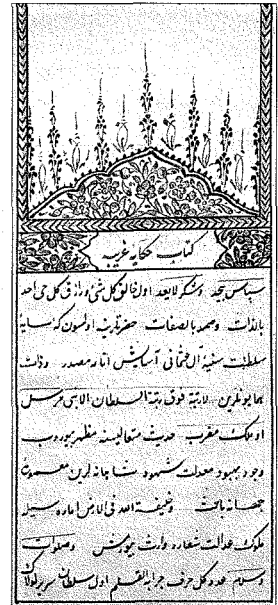 كتاب حكايه غريبه
سپاس بيحد وشكر لا يعد اول خالق كل شئ ورازق كل حى احد
بالذات وصمد بالصفات حضرتلرينه اولسون كه سايه
سلطنت سنيه آل عثمانى آسايش انامه مصدر وذات
همايونلرين لا رتبة فوق رتبة السلطان الا نبى مرسل
او ملك مقرب حديث متعاليسنه مظهر بيوروب
وجود بهبود معدلت شهود شاهانه لرين معموريت
جهانه باعث وخليفة الله فى الارض
ملوك عدالت شعاره وارث بيورمش وصلوات
وسلام كل حرف جرى به القلم اول سلطان سرير لولاك